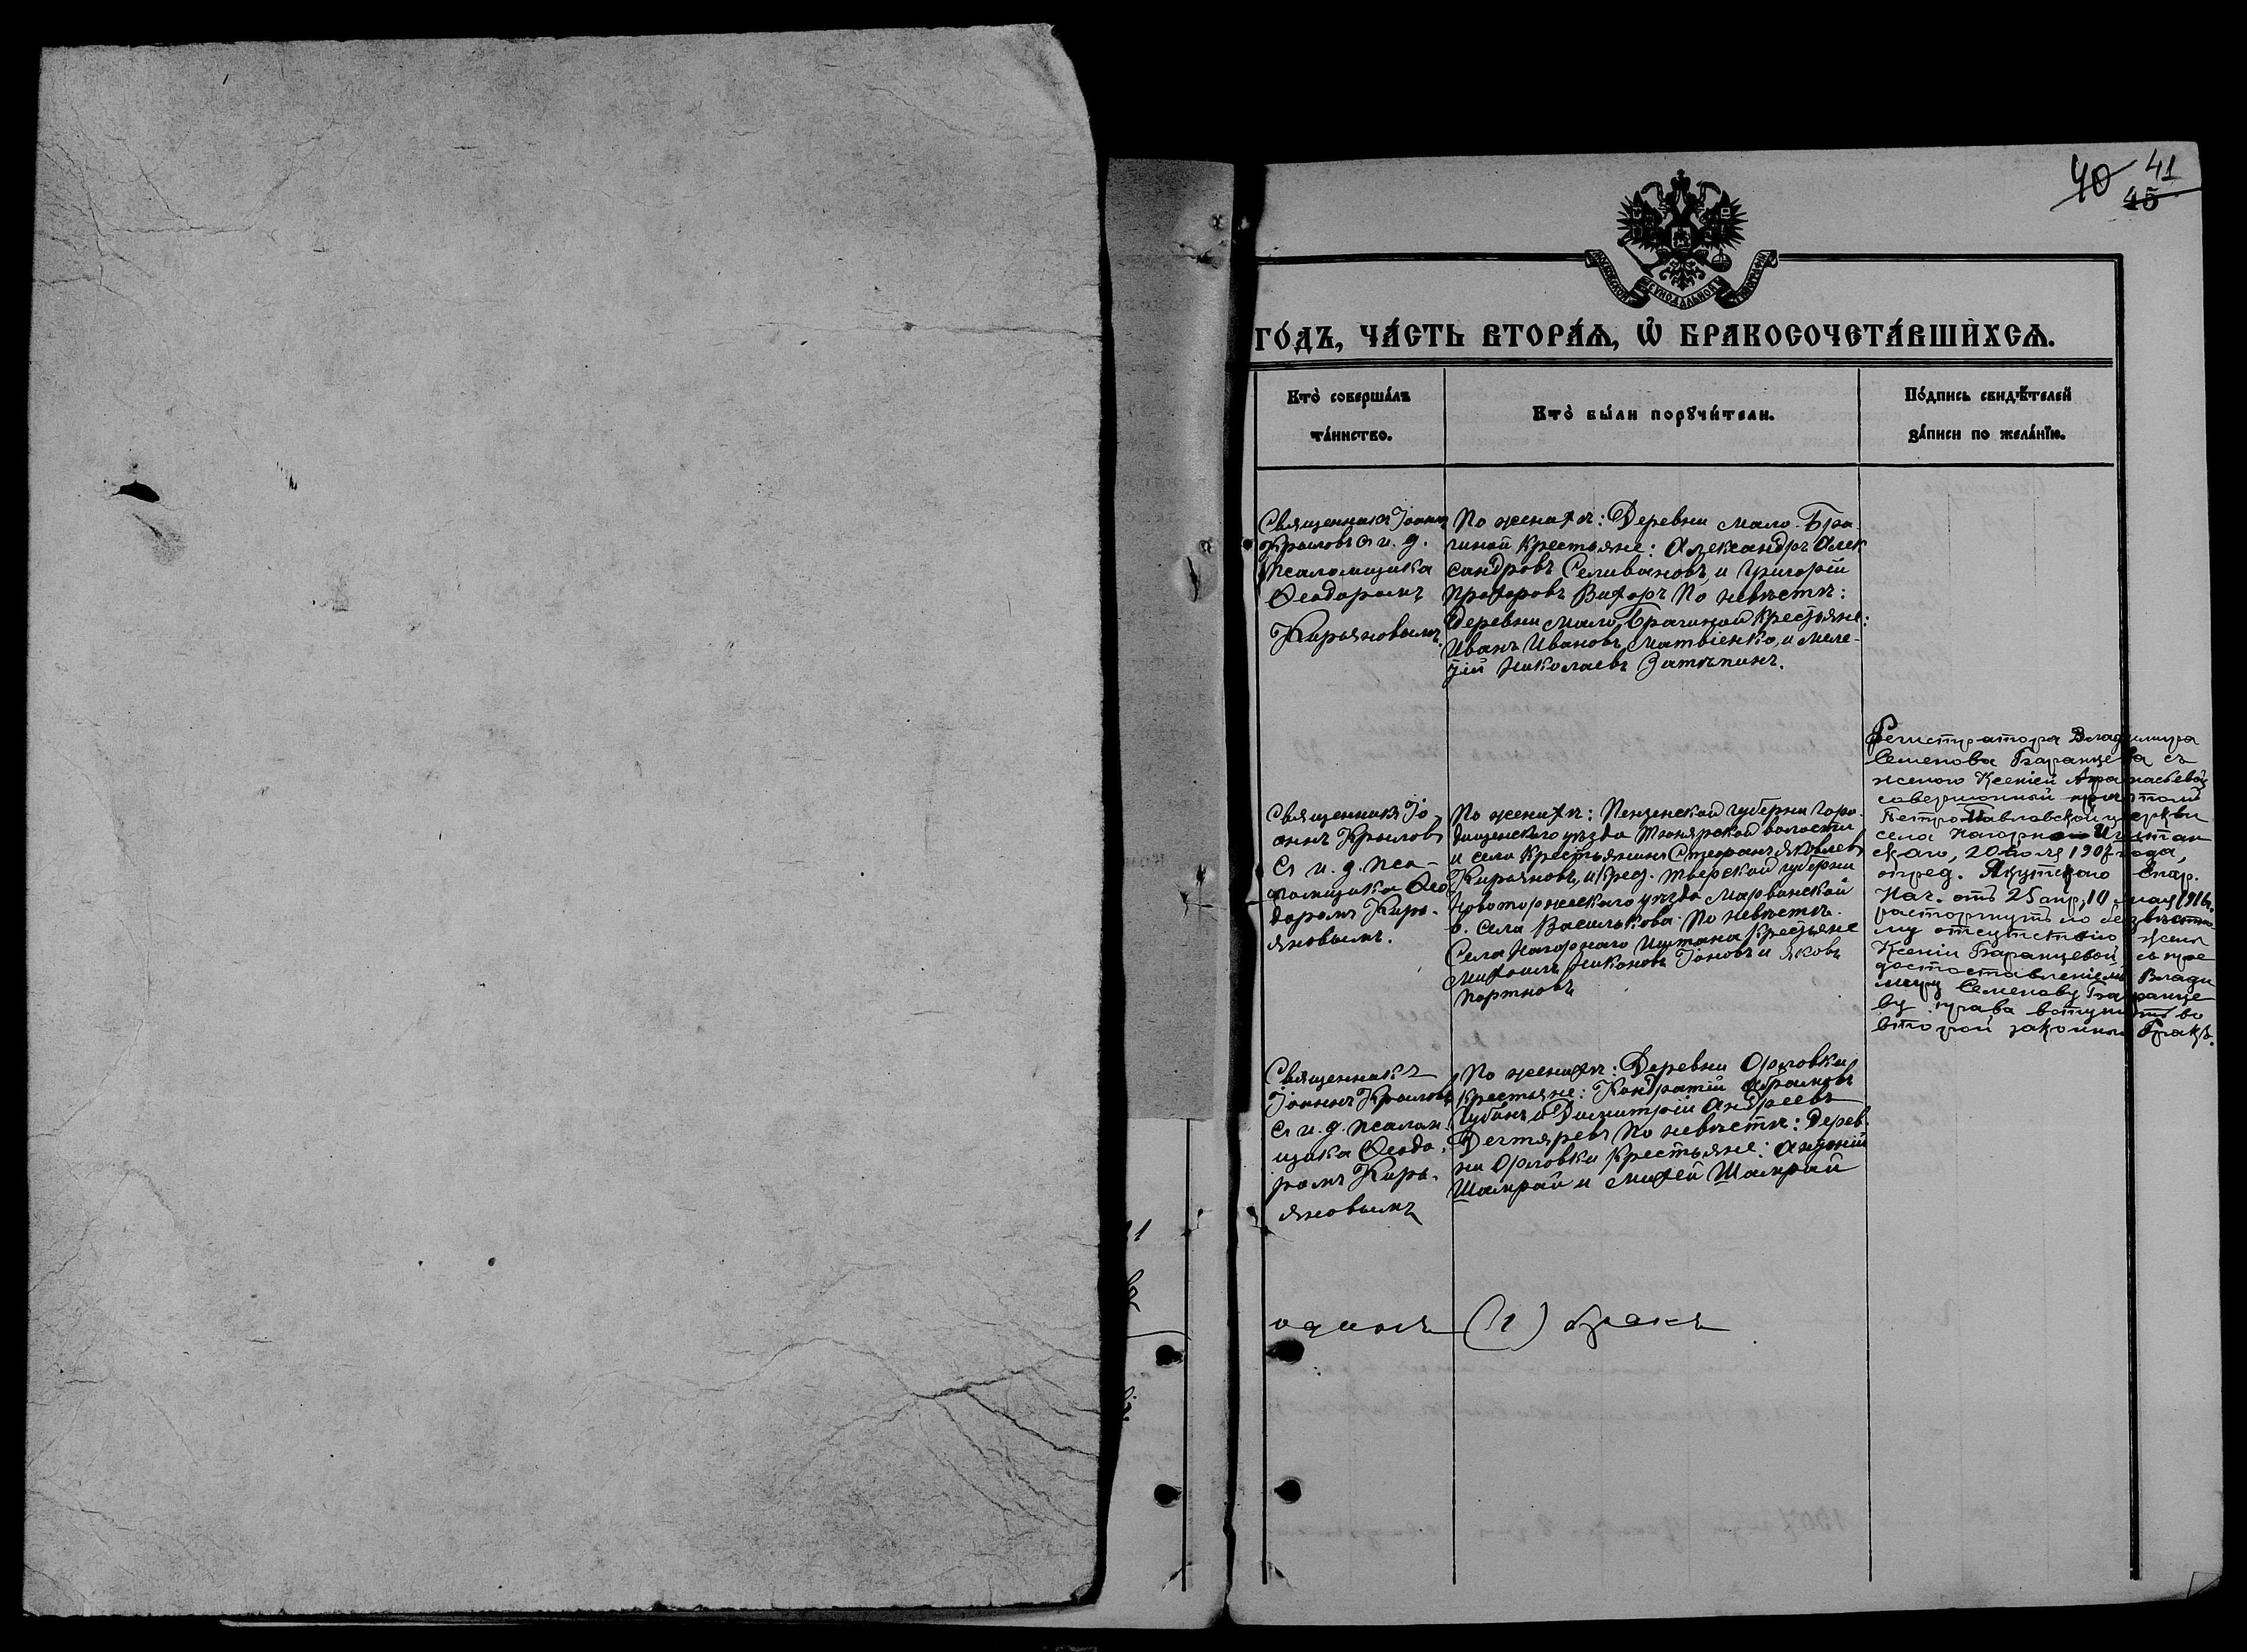 40 41
45
МОСКОВСКОЙ СѴНОДАЛЬНОЙ ТИПОГРАФІИ
ГО́ДЪ, ЧА́СТЬ ВТОРА́Ѧ, Ѡ҆ БРАКОСОЧЕТА́ВШИХСѦ.
Кто̀ соверша́лъ
та́инство.
Кто̀ бы́ли порꙋчи́тели.
По́дпись свидѣ́телей
за́писи по жела́нїю.
Священникъ Іоаннъ
Крыловъ съ и. д.
псаломщика
Ѳеодоромъ
Кирьяновымъ.
По женихѣ: Деревни Мало-Бра-
гиной крестьяне: Александръ Алек
сандровъ Селивановъ, и Григорій
Прохоровъ Вихоръ По невѣстѣ:
Деревни Мало-Брагиной крестьяне:
Иванъ Ивановъ Матвіенко, и Меле-
тій Николаевъ Затѣпинъ.
Священникъ Іо
аннъ Крыловъ
съ и. д. пса-
ломщика Ѳео
доромъ Кирь-
яновымъ.
По женихѣ: Пензенской губерніи Горо-
дищенскаго уѣзда Тюнярской волости
и села крестьянинъ Стефанъ Яковлевъ
Кирьяновъ, и крес. Тверской губерніи
Новоторжскаго уѣзда Марьинской
в. села Василькова По невѣстѣ.
Села Нагорнаго Иштана крестьяне
Михаилъ Никоновъ Іоновъ и Яковъ
Портновъ
Регистратора Владимира
Семенова Баранцева съ
женою Ксеніей Афанасьевой
совершонный причтомъ
Петро-Павловской церкви
села Нагорно-Иштан
скаго, 20 іюля 1907 года,
опред. Якутскаго Епар.
Нач. отъ 25 апр, 10 мая 1916 г.
расторгнутъ по безвѣстно-
му отсутствію жены
Ксеніи Баранцевой съ пре
доставленіемъ Влади
міру Семенову Баранце
ву права вступить во
второй законный бракъ.
Священникъ
Іоаннъ Крыловъ
съ и. д. псалом-
щика Ѳеодо-
ромъ Кирь-
яновымъ
По женихѣ: Деревни Орловки
крестьяне: Кондратій Абрамовъ
Губинъ и Димитрій Андреевъ
Дегтяревъ По невѣстѣ: Дерев-
ни Орловки крестьяне: Антоній
Шамрай и Михей Шамрай
одинъ (1) бракъ